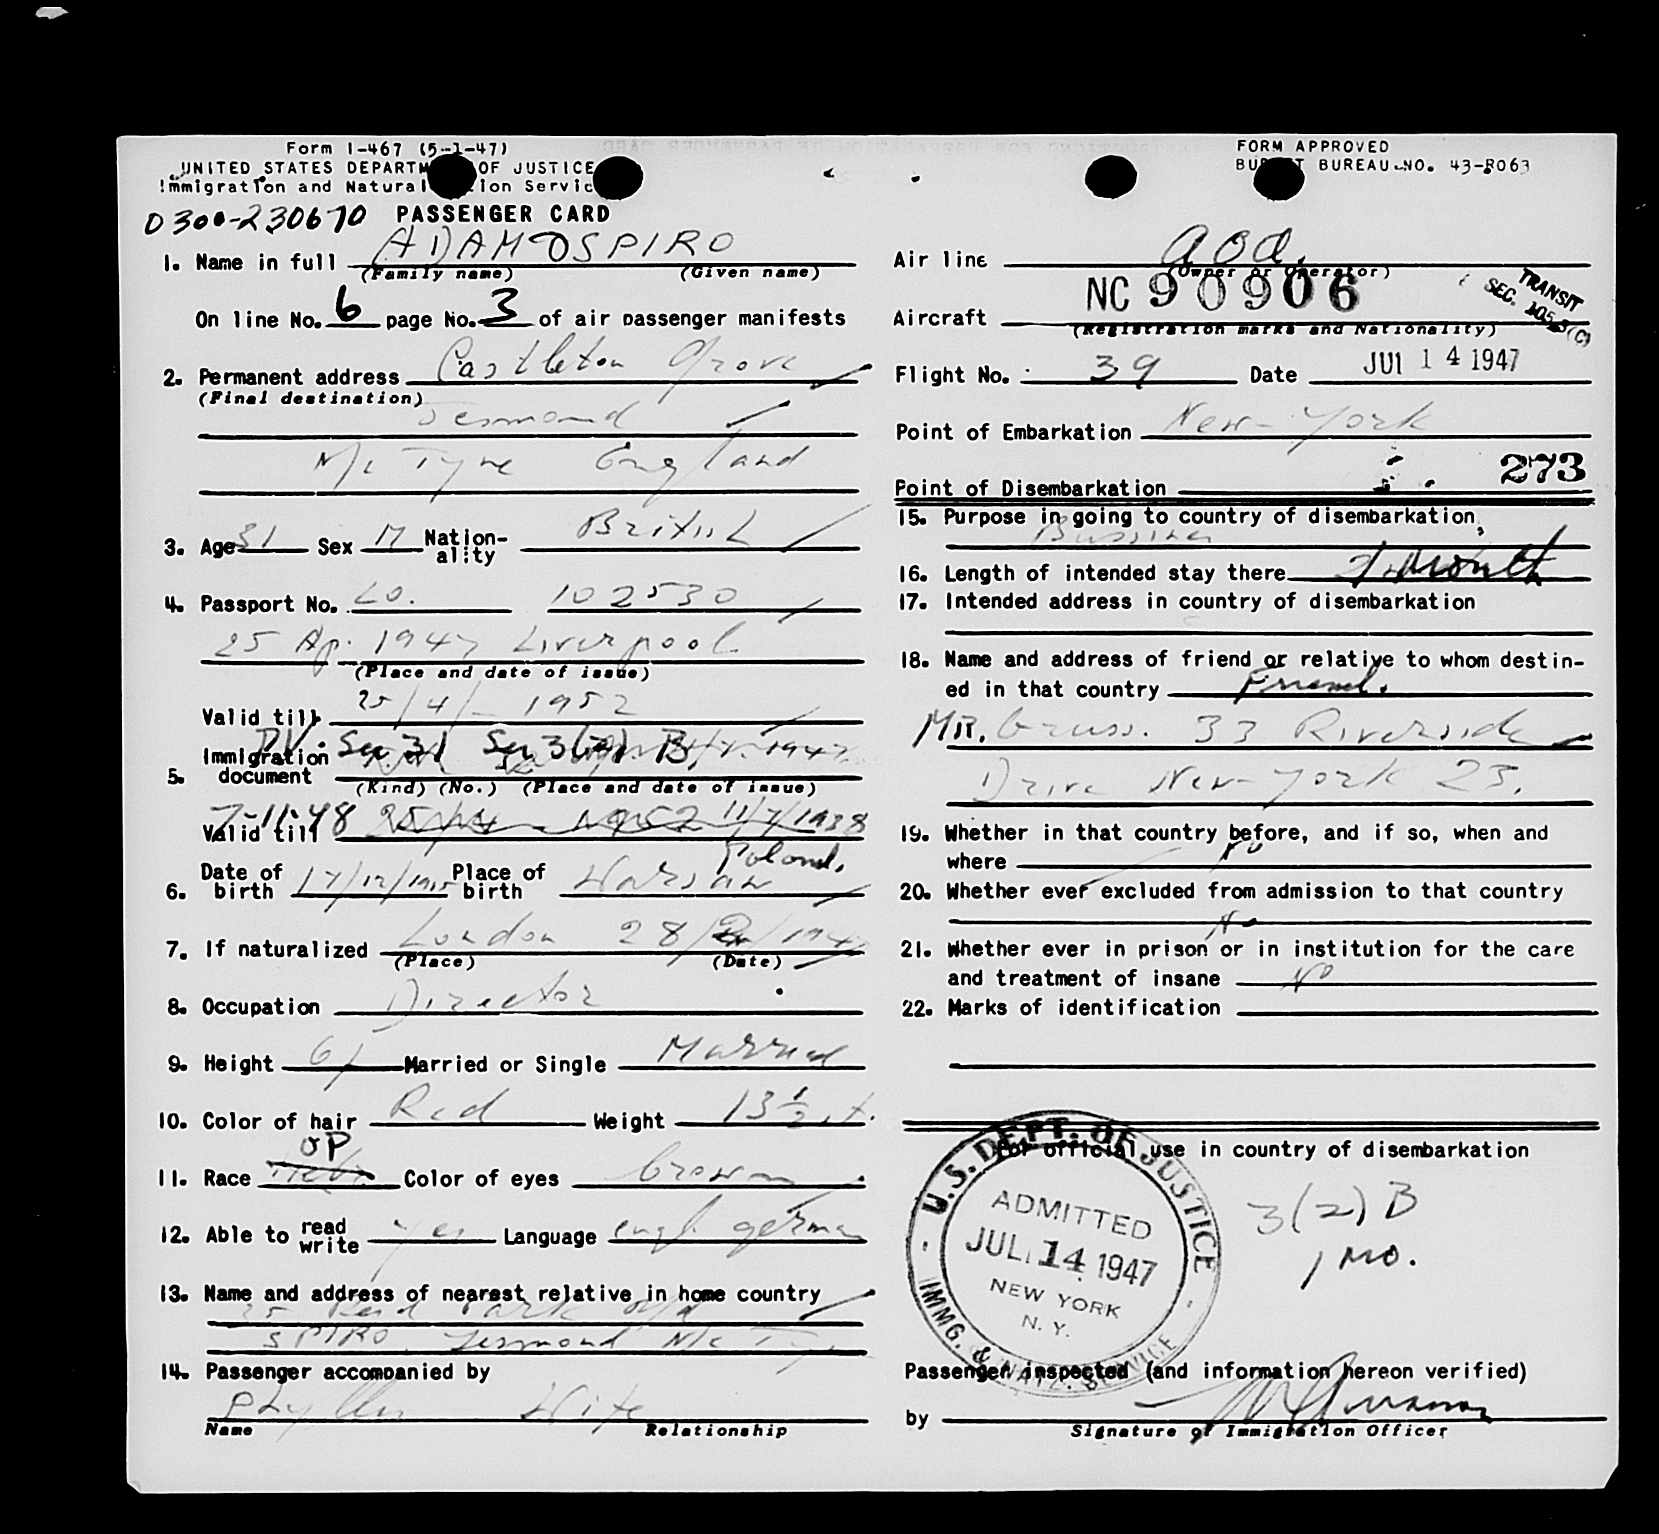 Form I-467 (5-1-47)
UNITED STATES DEPARTM OF JUSTICE
Immigration and Natural ion Servic
FORM APPROVED
BU T BUREAU NO. 43-R063
0300-230670 PASSENGER CARD
1. Name in full ADAM SPIRO
(Family name) (Given name)
On line No. 6 page No. 3 of air passenger manifests
2. Permanent address Castleton Grove
(Final destination)
Jesmond
N/c Tyne England
3. Age 31 Sex M Nation-ality British
4. Passport No. Lo. 102530
25 Ap. 1947 Liverpool
(Place and date of issue)
Valid till 25/4/- 1952
PV. Sec 31 Sec 3(2) B
5. Immigration document
(Kind) (No.) (Place and date of issue)
Valid till 7-11-48 25/4 - 1952
Poland.
6. Date of birth 17/12/1915 Place of birth Warsaw
7. If naturalized London 28/ /194
(Place) (Date)
8. Occupation Director
9. Height 6/ Married or Single Married
10. Color of hair Red Weight 13 1/2 st.
OP
11. Race Color of eyes brown
12. Able to read write yes Language engl. german
13. Name and address of nearest relative in home country
25 Park
SPIRO Jesmond N/c Ty
14. Passenger accompanied by
Phyllis Wife
Name Relationship
Air line AOA.
(Owner or Operator)
Aircraft NC 90906
(Registration marks and Nationality)
TRANSIT
SEC. 105.3(C)
Flight No. 39 Date JUL 14 1947
Point of Embarkation New-York
273
Point of Disembarkation
15. Purpose in going to country of disembarkation,
Bussines
16. Length of intended stay there month
17. Intended address in country of disembarkation
18. Name and address of friend or relative to whom destin-
ed in that country Friend.
MR. Gruss. 33 Riverside
Drive New-York 23.
19. Whether in that country before, and if so, when and
where No
20. Whether ever excluded from admission to that country
No
21. Whether ever in prison or in institution for the care
and treatment of insane No
22. Marks of identification
For official use in country of disembarkation
U.S. DEPT. OF JUSTICE
ADMITTED
JUL 14 1947
NEW YORK
N. Y.
IMMG. & NATZ. SERVICE
3(2) B
1 MO.
Passenger inspected (and information hereon verified)
by
Signature of Immigration Officer